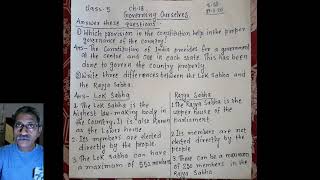 Class-5 Ch-18
Governing Ourselves
Answer these questions
1) Which provision in the constitution help in the proper
governance of the country?
Ans- The Constitution of India provides for a government
at the centre and one in each state. This has
been done to govern the country properly.
2) Write three differences between the Lok Sabha
and the Rajya Sabha.
Ans- Lok Sabha
1. The Lok Sabha is the
highest law-making body in
the country. It is also known
as the Lower house.
2. Its members are elected
directly by the people
3. The Lok Sabha can have
a maximum of 552 members
Rajya Sabha
1. The Rajya Sabha is the
upper house of the
parliament.
2. Its members are not
elected directly by the
people.
3. There can be a maximum
of 250 members in the
Rajya Sabha